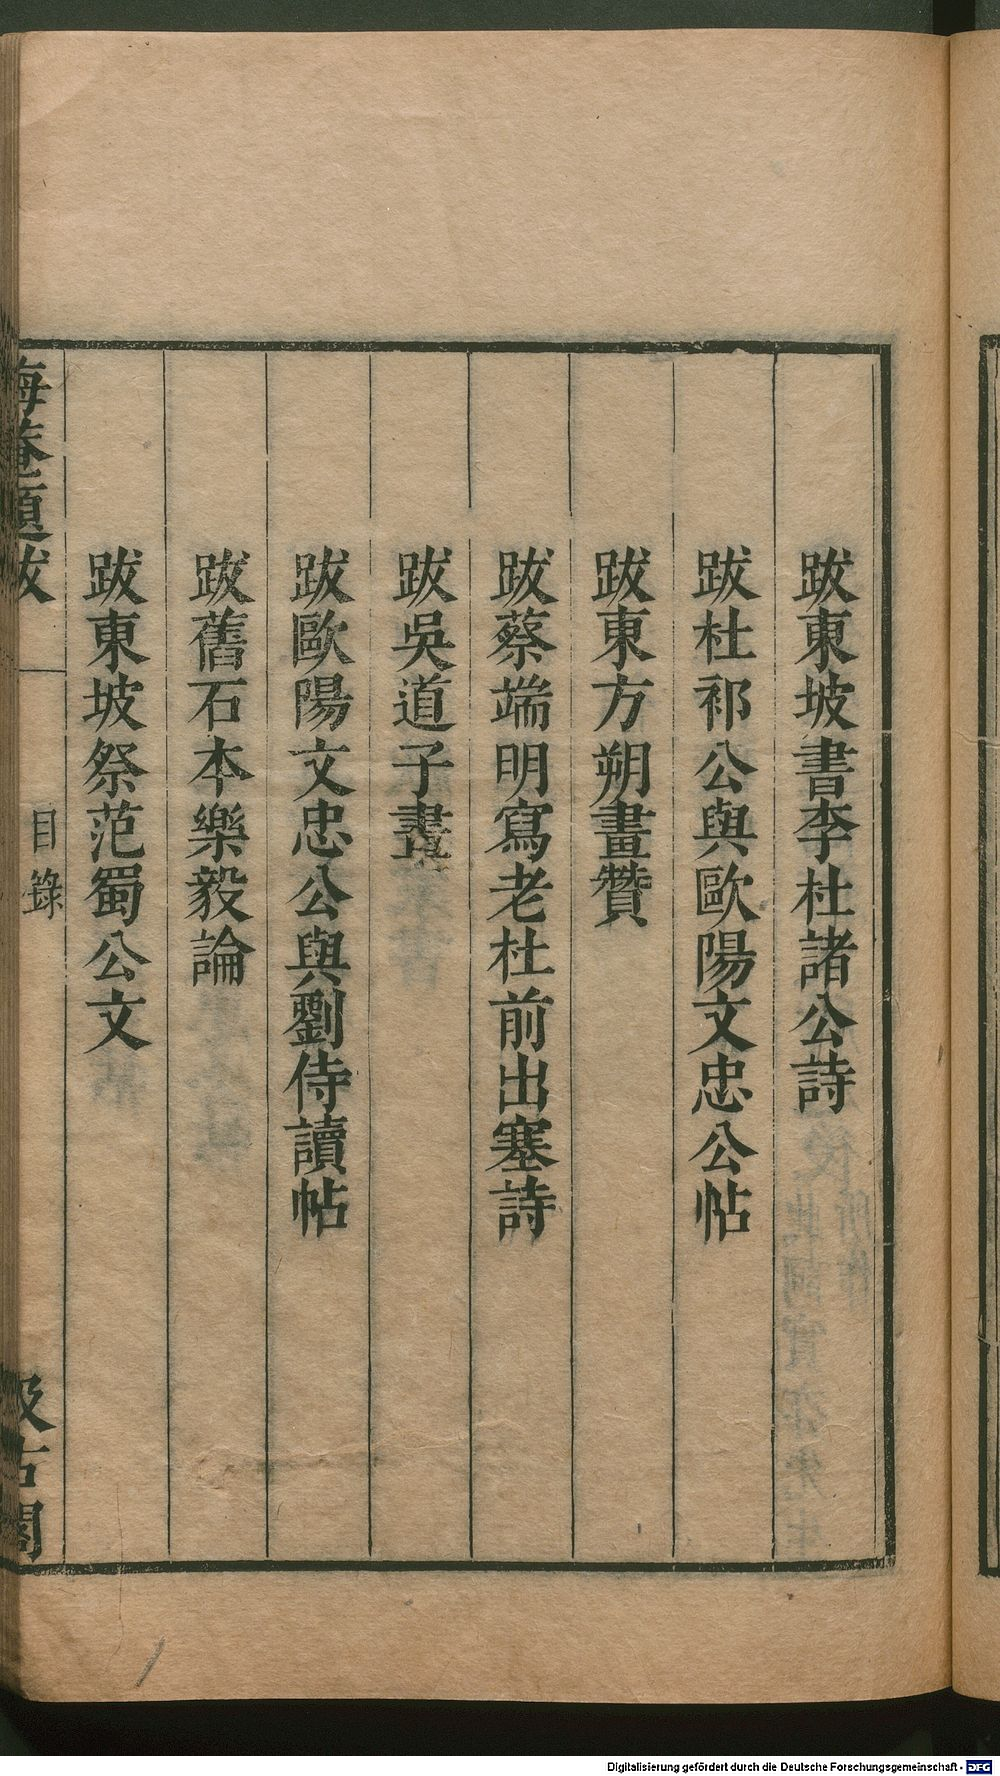 跋東坡書李杜諸公詩
跋杜祁公與歐陽文忠公帖
跋東方朔畫贊
跋蔡端明寫老杜前出塞詩
跋吳道子畫
跋歐陽文忠公與劉侍讀帖
跋舊石本樂毅論
跋東坡祭范蜀公文
晦菴題跋
目錄
汲古閣
Digitalisierung gefördert durch die Deutsche Forschungsgemeinschaft - DFG